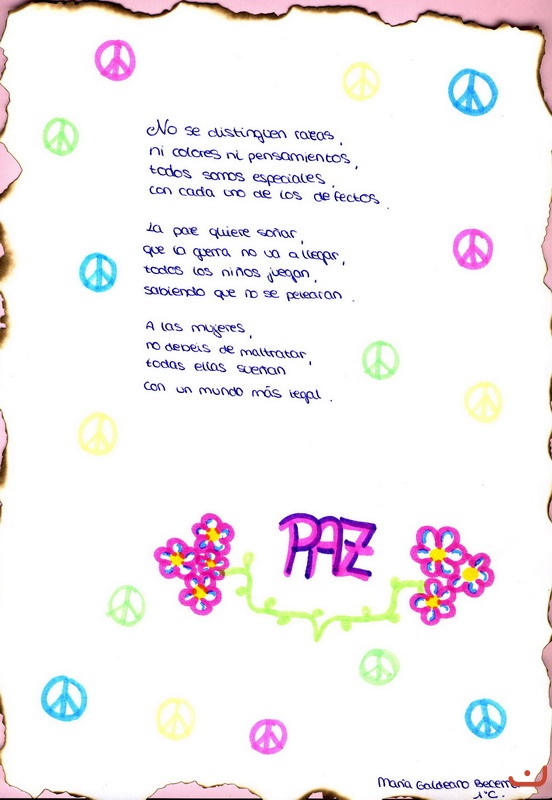 No se distinguen razas,
ni colores ni pensamientos,
todos somos especiales,
con cada uno de los defectos.
La paz quiere soñar,
que la guerra no va a llegar,
todos los niños juegan,
sabiendo que no se pelearan.
A las mujeres,
no debeis de maltratar,
todas ellas sueñan
con un mundo más legal.
PAZ
Maria Galdeano
1°C.